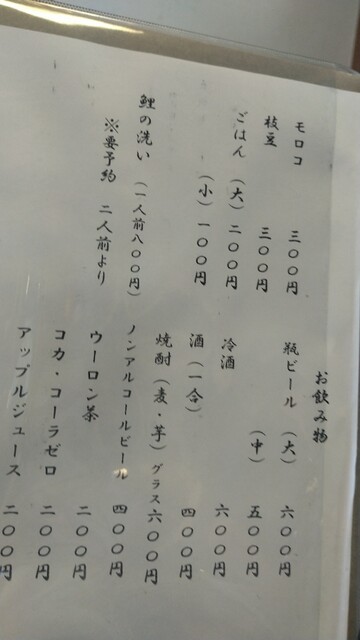 モロコ 三〇〇円
枝豆 三〇〇円
ごはん (大) 二〇〇円
(小) 一〇〇円
鯉の洗い (一人前八〇〇円)
※要予約 二人前より
お飲み物
瓶ビール (大) 六〇〇円
(中) 五〇〇円
冷酒 六〇〇円
酒 (一合) 四〇〇円
焼酎 (麦・芋) グラス 六〇〇円
ノンアルコールビール 四〇〇円
ウーロン茶 二〇〇円
コカ・コーラゼロ 二〇〇円
アップルジュース 二〇〇円